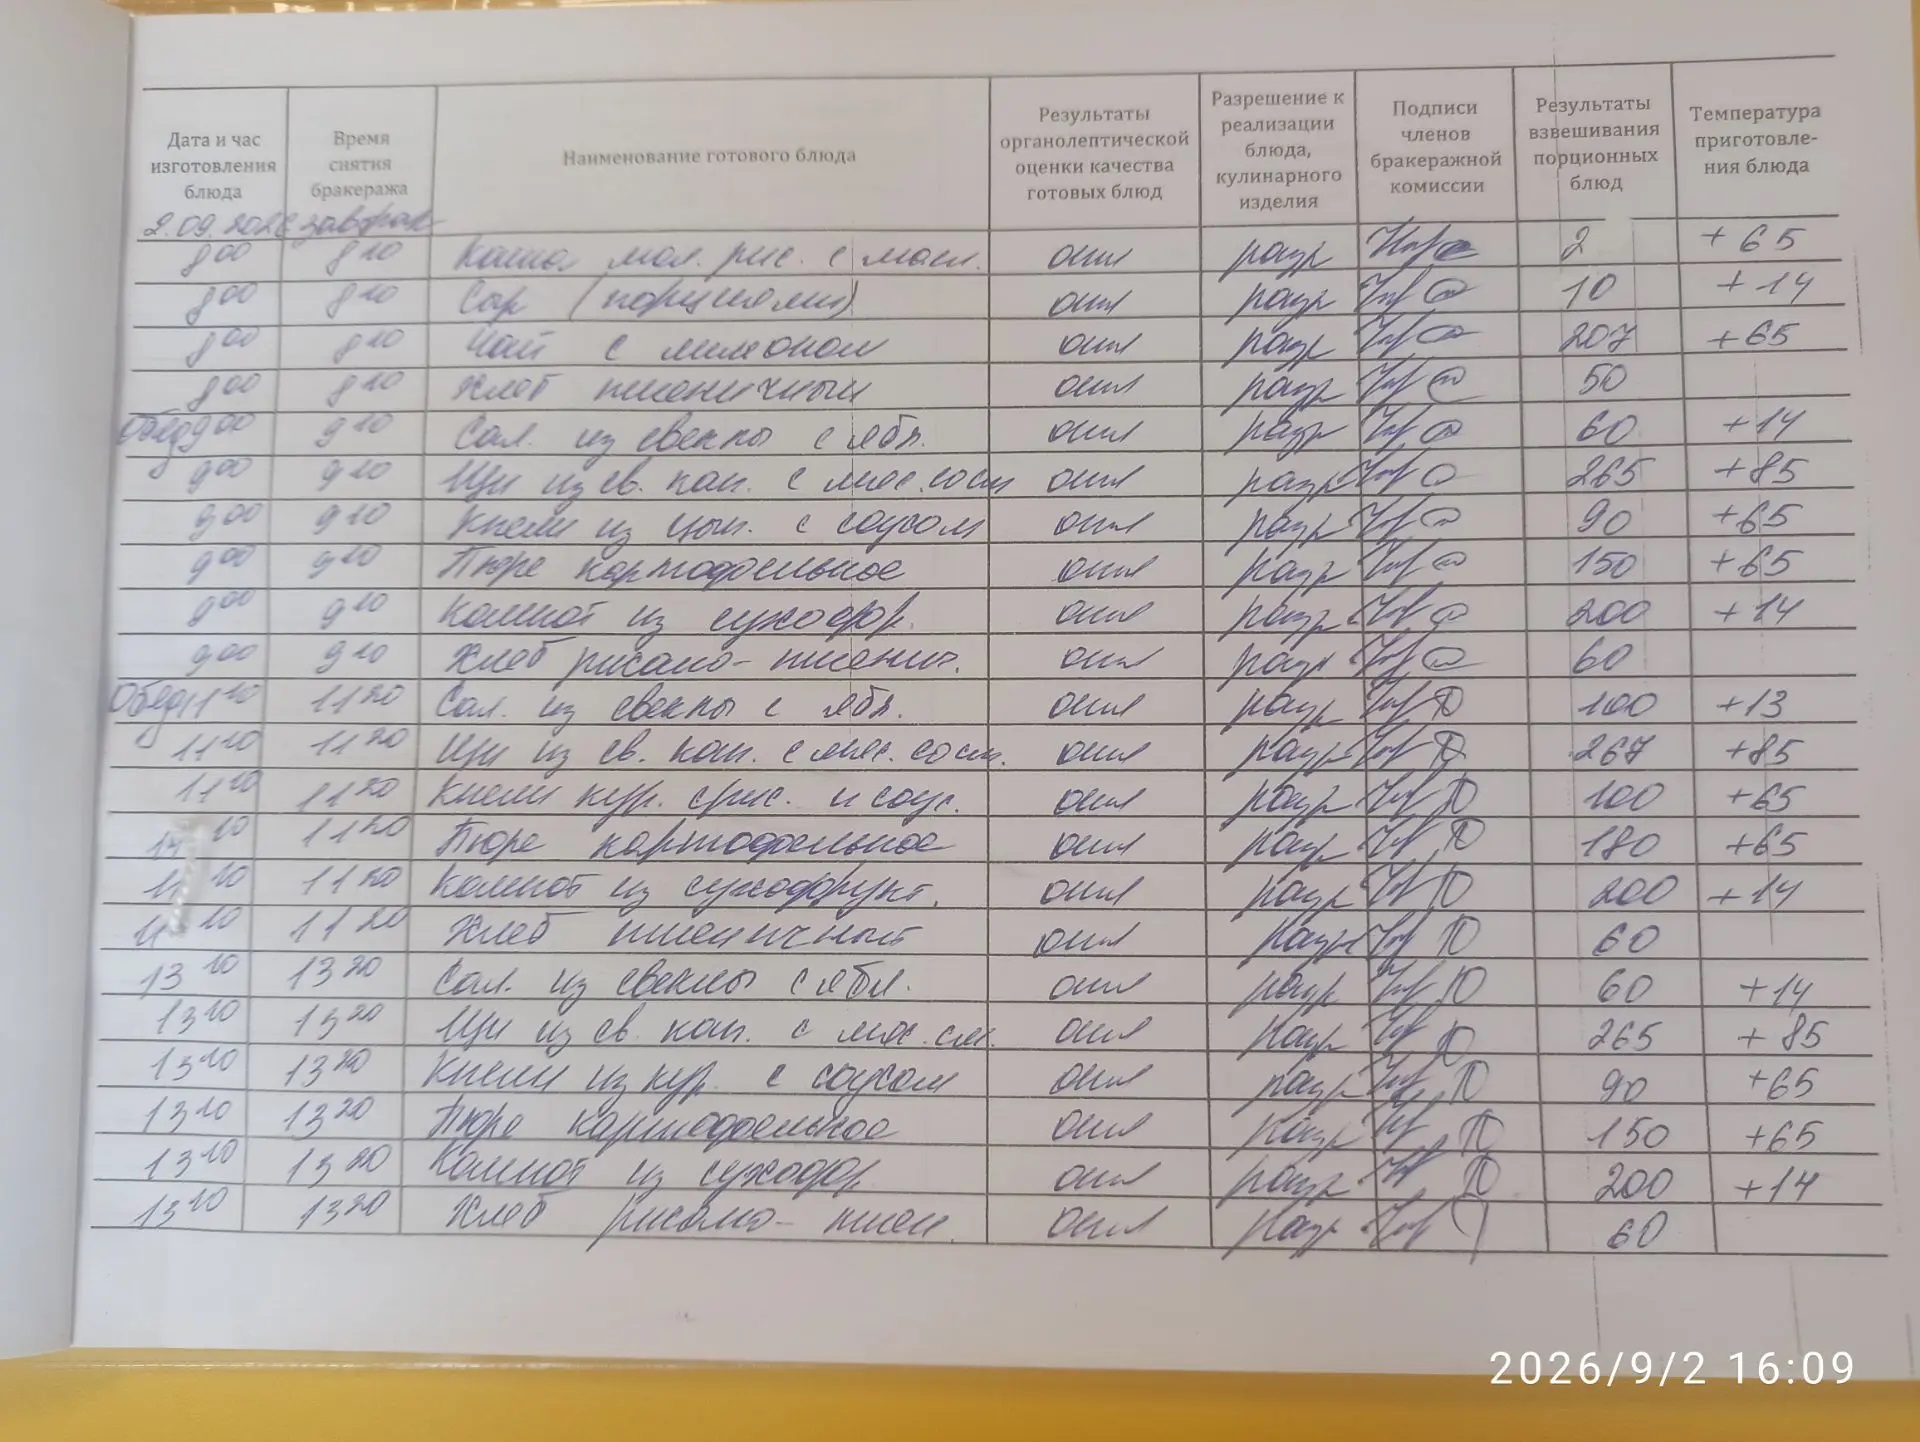 Дата и час изготовления блюда | Время снятия бракеража | Наименование готового блюда | Результаты органолептической оценки качества готовых блюд | Разрешение к реализации блюда, кулинарного изделия | Подписи членов бракеражной комиссии | Результаты взвешивания порционных блюд | Температура приготовле- ния блюда
2.09.2026 завтрак
8 00 8 10 Каша мол. рис. с масл. разр 2 +65
8 00 8 10 Сыр (порциями) разр 10 +14
8 00 8 10 Чай с лимоном разр 207 +65
8 00 8 10 Хлеб пшеничный разр 50
Обед 9 00 9 10 Сал. из свеклы с ябл. разр 60 +14
9 00 9 10 Щи из св. кап. с мяс. сосн разр 265 +85
9 00 9 10 Кнели из цып. с соусом разр 90 +65
9 00 9 10 Пюре картофельное разр 150 +65
9 00 9 10 Компот из сухофр. разр 200 +14
9 00 9 10 Хлеб ржано-пшенич. разр 60
Обед 11 10 11 20 Сал. из свеклы с ябл. разр 100 +13
11 10 11 20 Щи из св. кап. с мяс. сосн. разр 267 +85
11 10 11 20 Кнели кур. с рис. и соус. разр 100 +65
11 10 11 20 Пюре картофельное разр 180 +65
11 10 11 20 Компот из сухофрукт. разр 200 +14
11 10 11 20 Хлеб пшеничный разр 60
13 10 13 20 Сал. из свеклы с ябл. разр 60 +14
13 10 13 20 Щи из св. кап. с мяс. разр 265 +85
13 10 13 20 Кнели из кур. с соусом разр 90 +65
13 10 13 20 Пюре картофельное разр 150 +65
13 10 13 20 Компот из сухофр разр 200 +14
13 10 13 20 Хлеб ржано-пшен. разр 60
2026/9/2 16:09